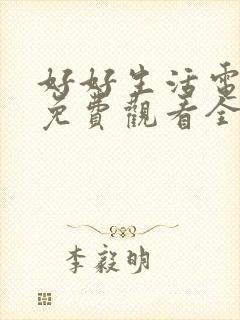 好好生活電
免費觀看全
李毅明